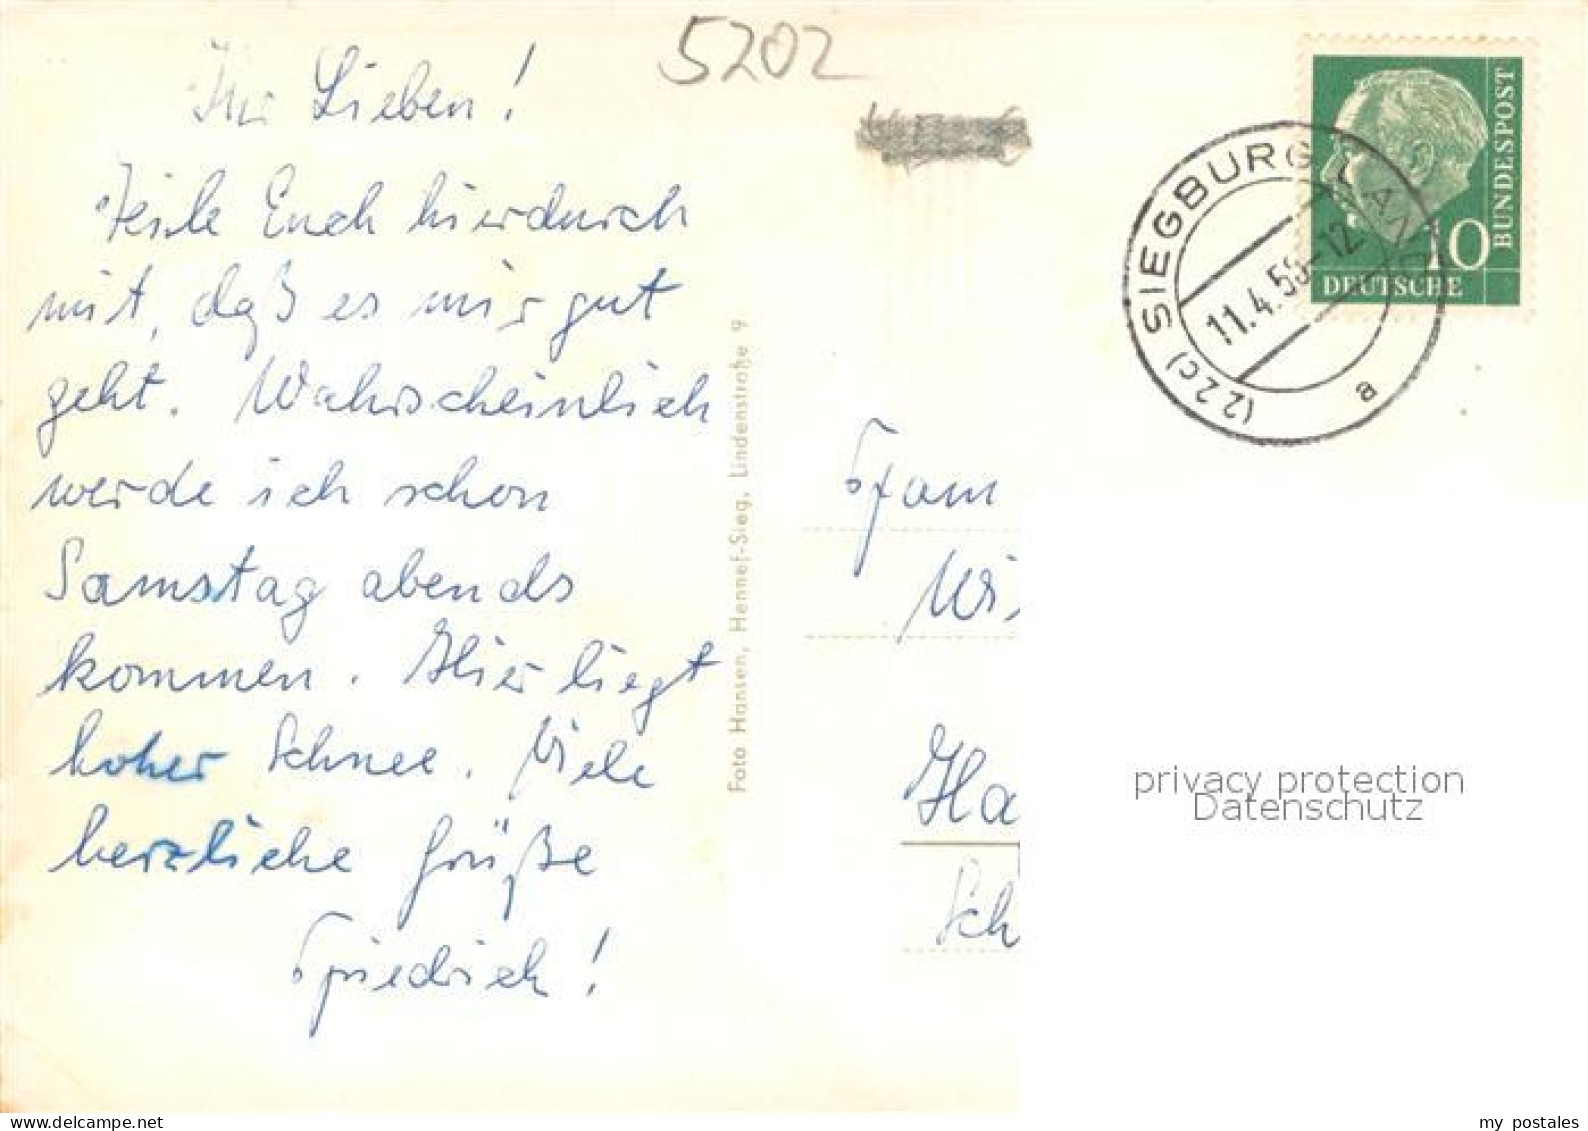 5202
Ihr Lieben!
Teile Euch hierdurch
mit, daß es mir gut
geht. Wahrscheinlich
werde ich schon
Samstag abends
kommen. Hier liegt
hoher Schnee. Viele
herzliche Grüße
Friedrich!
Foto Hansen, Hennef-Sieg, Lindenstraße 9
DEUTSCHE
BUNDESPOST
10
(22c) SIEGBURG LAND
11.4.58-12
a
Fam
Wi
Ha
Sch
privacy protection
Datenschutz
my postales